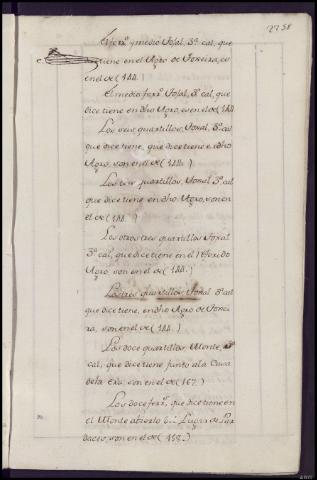 2258
ferr.º y medio Toxal, 3.ª cal, que
dice tiene en el Agro de Toxeira, es
en el de (144.)
El medio ferr.º Toxal, 3.ª cal, que
dice tiene en dho Agro, es en el de (144.
Los seis quartillos, Toxal, 3.ª cal
que dice tiene, que dice tiene en dho
Agro, son en el de (144.)
Los tres quartillos, Toxal 3.ª cal
que dice tiene, en dho Agro, son en
el de (144.)
Los otros tres quartillos Toxal
3.ª cal, que dice tiene en el referido
Agro, son en el de (144.)
Los tres quartillos, Toxal 3.ª cal
que dice tiene, en dho Agro de Toxei
ra, son en el de (144.)
Los doce quartillos, Monte,
cal, que dice tiene junto ala Casa
dela Era, son en el de (167.)
Los doce ferr.s, que dice tiene en
el Monte abierto
son en el de (158.)